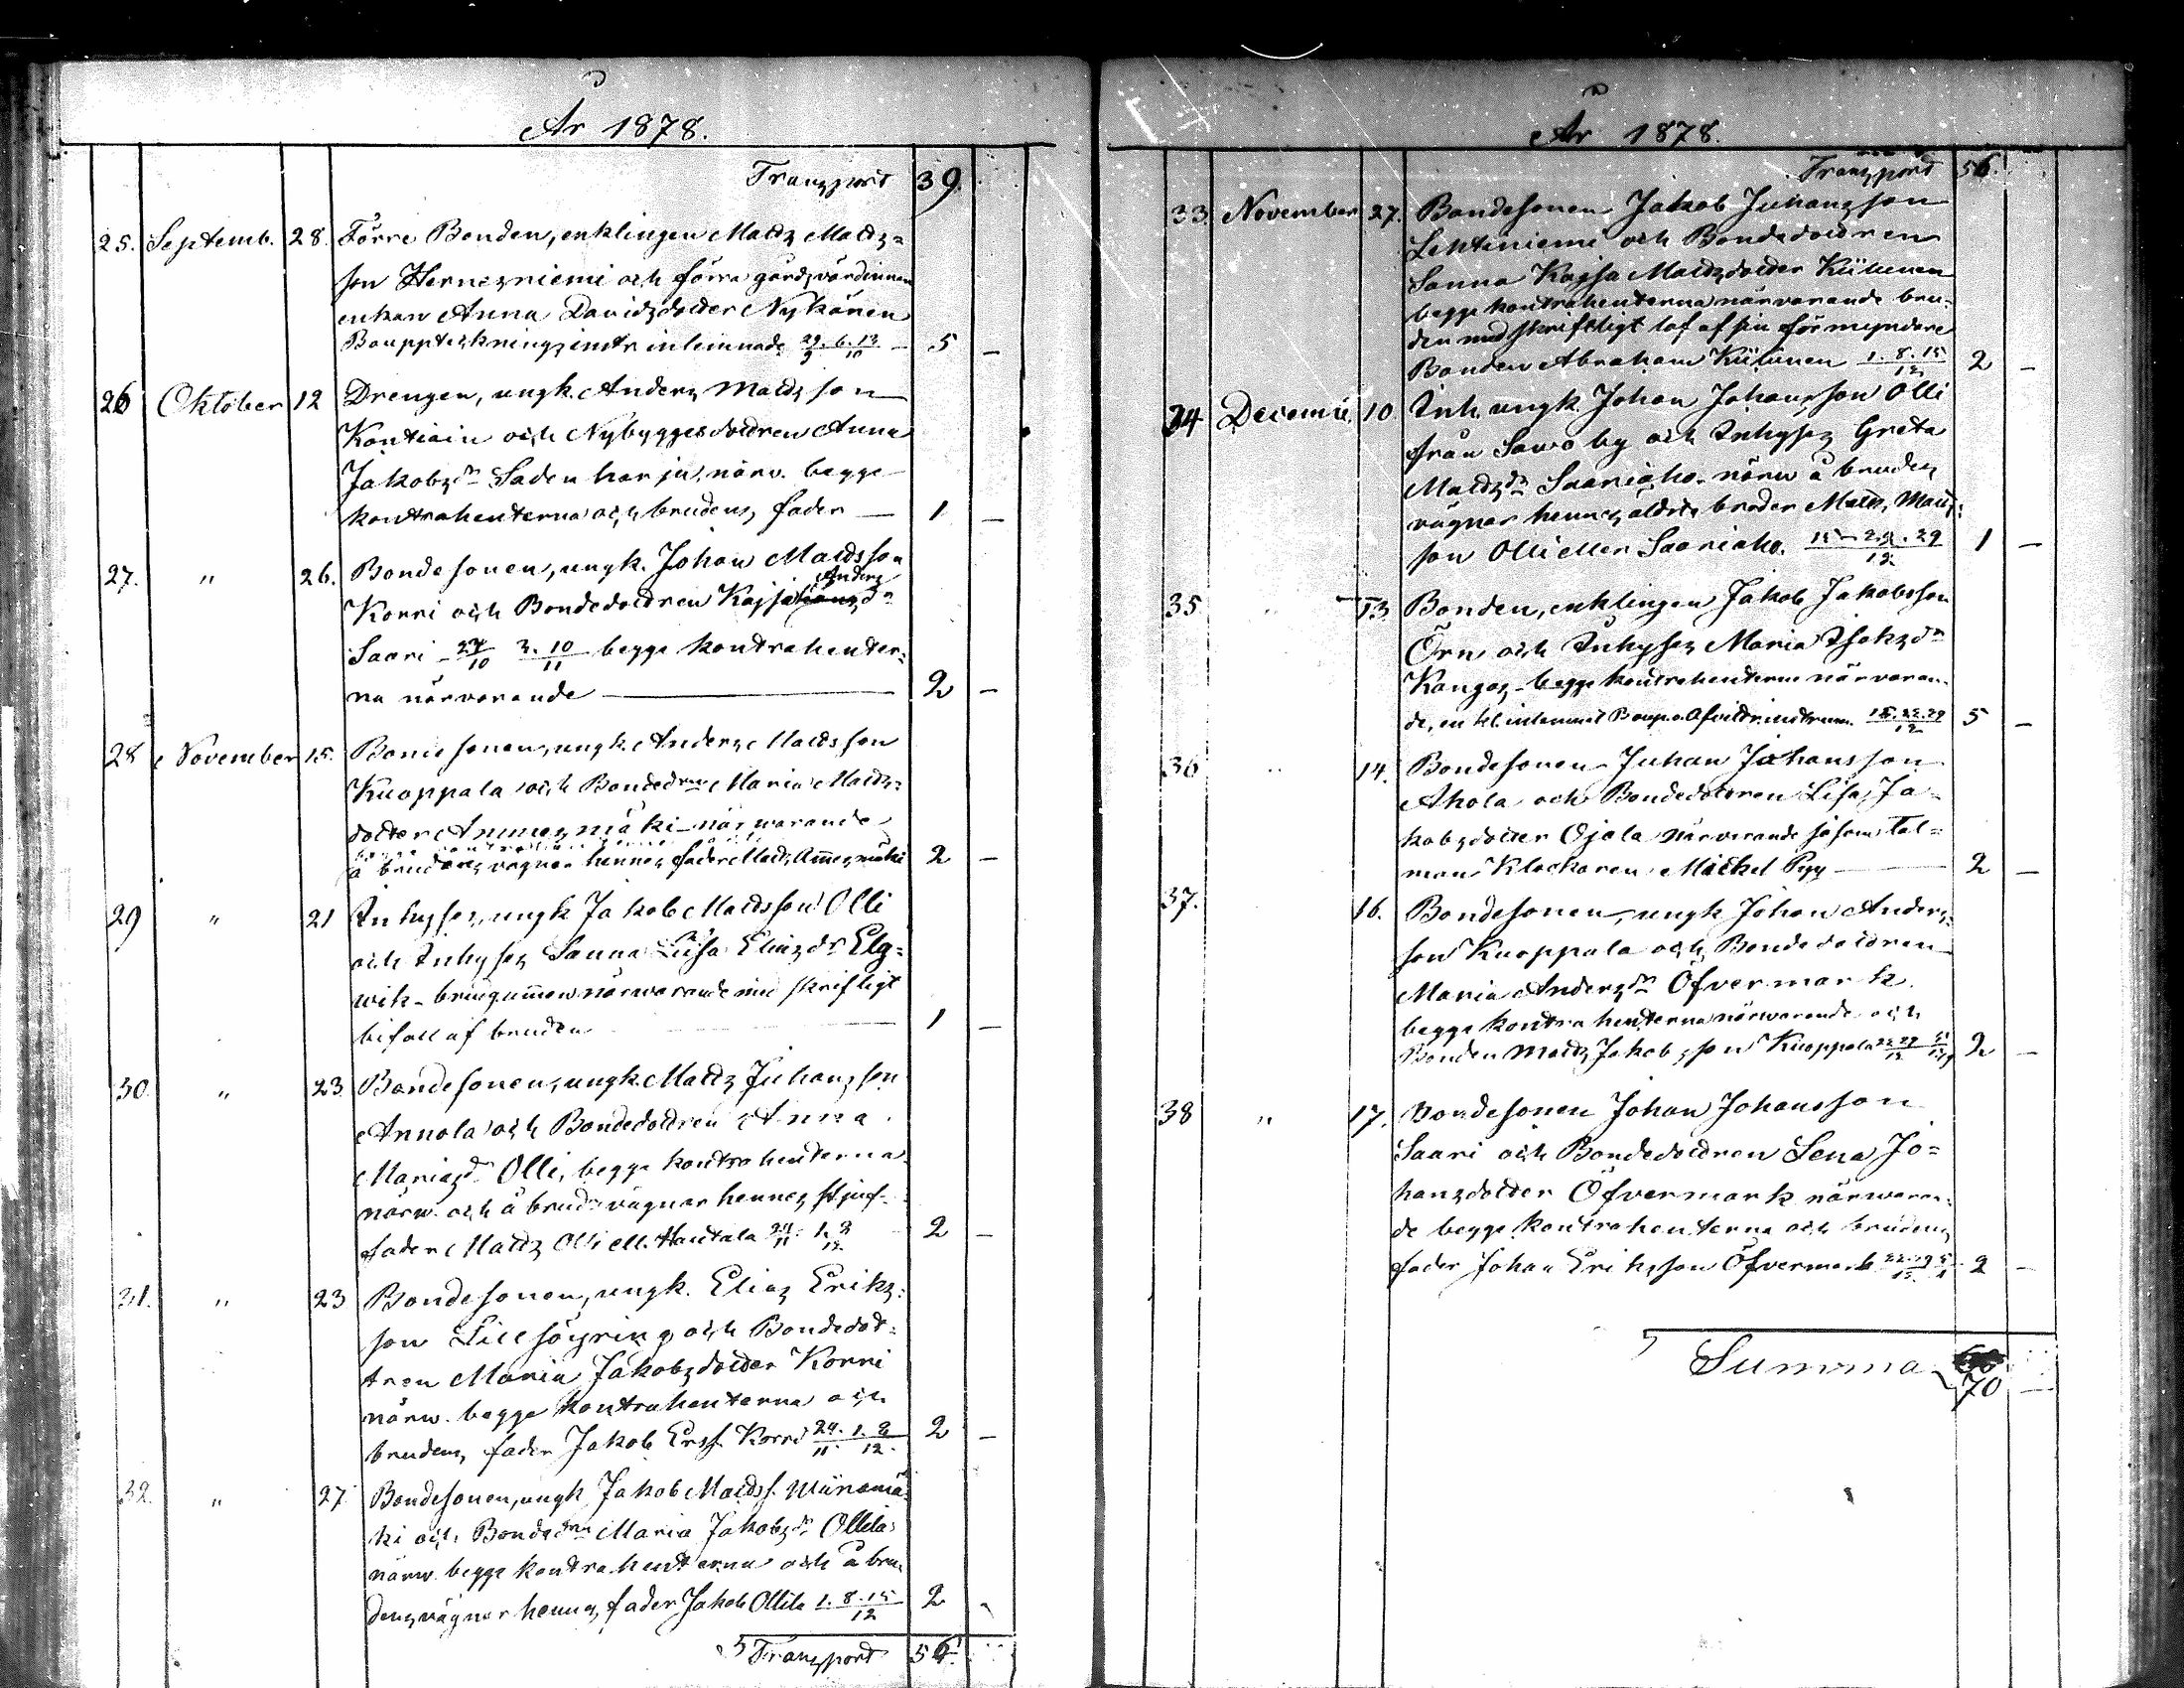 År 1878.
Transport 39
25. Septemb. 28. Förre Bonden, enklingen Matts Matts=
son Hernesniemi och förra gårdsvärdinnan
enkan Anna Davidsdotter Nykänen
Bouppteckningsinstr inlemnade 29. 6. 13 / 9 10 — 5 —
26 Oktober 12 Drengen, ungk. Anders Matts son
Kontiain och Nybyggesdottren Anna
Jakobsdr Sadenharju, närv. begge
kontrahenterna och brudens fader — 1 —
27. " 26. Bondesonen, ungk. Johan Mattsson
Anders
Korri och Bondedottren Kajsa dr
Saari 27/10 3. 10/11 begge kontrahenter=
na närvarande — 2 —
28 November 15. Bondesonen, ungk. Anders Mattsson
Kuoppala och Bondedtrn Maria Matts=
dotter Ammesmäki närwarande
å brudens vägnar hennes fader Matts Ammesmäki 2 —
29 " 21 Inhyses, ungk Jakob Mattsson Olli
och Inhyses Sanna Lisa Eliasdr Elg=
wik - brudgummen närwarande med skrifligt
bifall af bruden — 1 —
30. " 23. Bondesonen, ungk. Matts Juhansson
Annola och Bondedottren Anna
Mariasdr Olli, begge kontrahenterna
närw. och å bruds vägnar hennes stjuf-
fader Matts Olli ell. Hautala 24/11 1. 8/12 2 —
31. " 23 Bondesonen, ungk. Elias Eriks=
son Lillsöyring och Bondedot=
tren Maria Jakobsdotter Korri
närw. begge kontrahenterna och
brudens fader Jakob Erss. Korri 24. 1. 8 / 11. 12. 2 —
32. " 27. Bondesonen, ungk Jakob Matss. Wiinamä=
ki och Bondedtrn Maria Jakobsdr Ollila
närw. begge kontrahenterna och å bru-
dens vägnar hennes fader Jakob Ollila 1. 8. 15/12 2 -
Transport 56
År 1878.
Transport 56.
33. November 27. Bondesonen Jakob Juhansson
Lehtiniemi och Bondedottren
Sanna Kajsa Mattsdotter Kiilunen
begge kontrahenterna närvarande bru=
den med skriftligt lof af sin förmyndare
Bonden Abraham Kiilunen 1. 8. 15/12 2 —
34 Decemb. 10. Inh. ungk. Johan Johansson Olli
från Sawo by och Inhyses Greta
Mattsdr Saariaho, närw å brudens
vägnar hennes äldste broder Matts Matts=
son Olli eller Saariaho. 15. 22. 29/12 1 —
35 " 13 Bonden, enklingen Jakob Jakobsson
Örn och Inhyses Maria Isaksdr
Kangas - begge kontrahenterna närvaran-
de, enkl. inlemnat Boupp.o.Afvittr.instrum. 15. 22. 29/12 5 —
36 " 14. Bondesonen Juhan Johansson
Akola och Bondedottren Lisa Ja=
kobsdotter Ojala närvarande såsom tal=
man Klockaren Mickel Pyy — 2 —
37. 16. Bondesonen, ungk Johan Anders=
son Kuoppala och Bondedottren
Maria Andersdr Öfvermark
begge kontrahenterna närwarande och
Bonden Matts Jakobsson Kuoppala 22 29/12 2 —
38 " 17. Bondesonen Johan Johansson
Saari och Bondedottren Lena Jo=
hansdotter Öfvermark närwaran=
de begge kontrahenterna och brudens
fader Johan Eriksson Öfvermark 22. 29/12 5/1 2 —
Summa
70 —